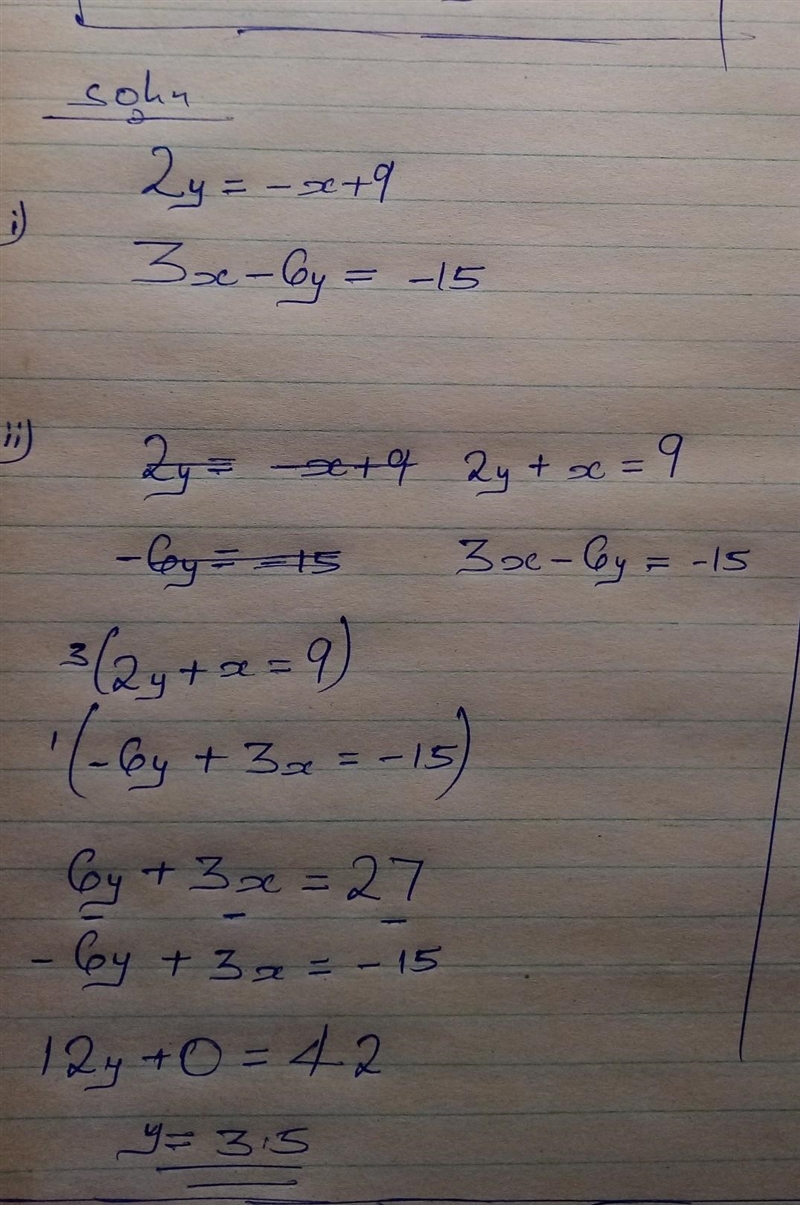 soln
2y = -x+9
i)
3x - 6y = -15
ii) 2y = -x+9 2y + x = 9
-6y = -15 3x - 6y = -15
3(2y + x = 9)
1(-6y + 3x = -15)
6y + 3x = 27
- - -
-6y + 3x = -15
12y + 0 = 42
y = 3.5